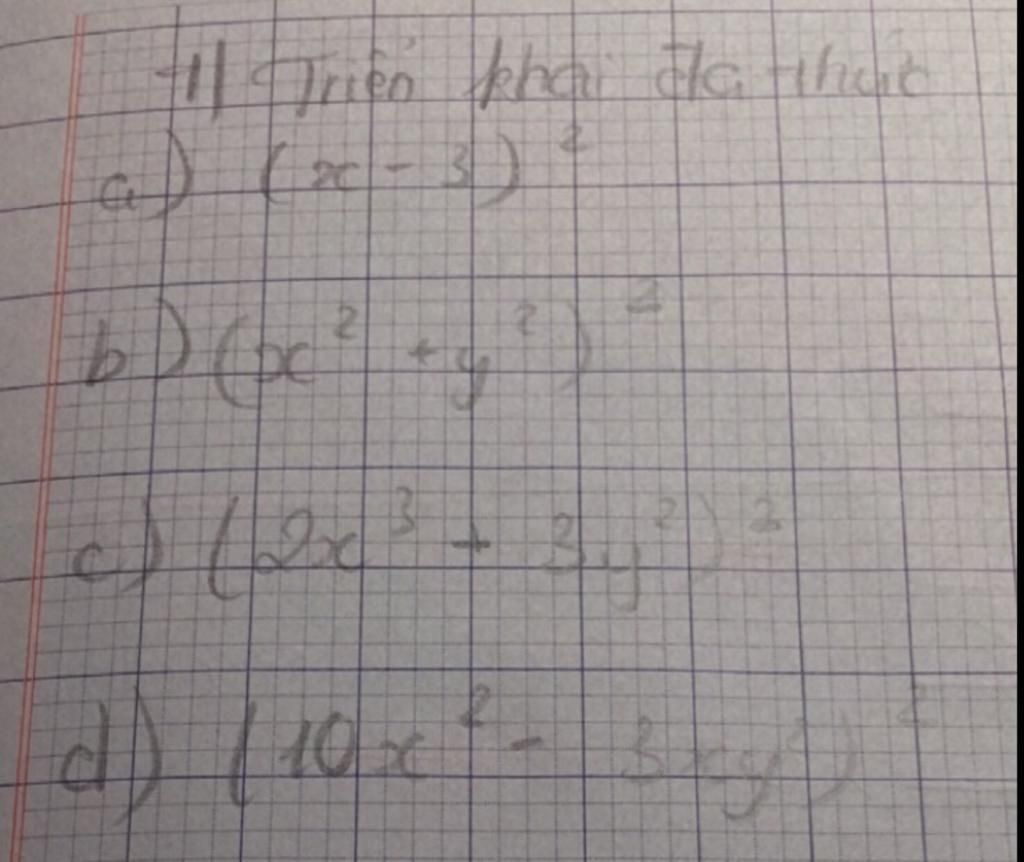 1) Triển khai đa thức
a) (x - 3)²
b) (x² + y²)²
c) (2x³ + 3y²)²
d) (10x² - 3xy²)²